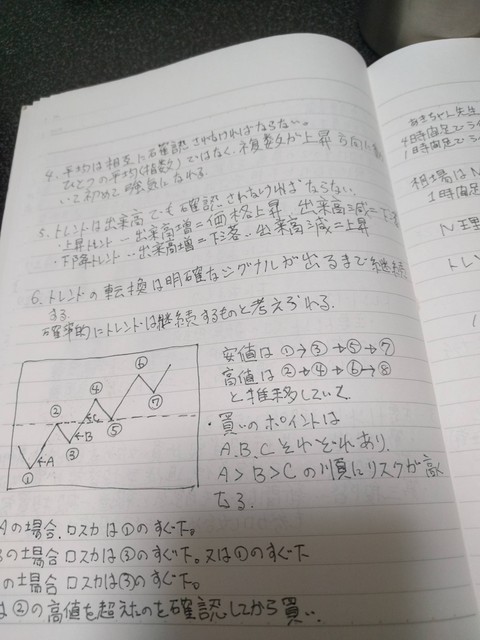 4. 平均は相互に確認されなければならない。
ひとつの平均(指数)ではなく、複数が上昇方向に動
いて初めて強気になれる。
5. トレンドは出来高でも確認されなければならない。
・上昇トレンド…出来高増=価格上昇 出来高減=下落
・下降トレンド…出来高増=下落…出来高減=上昇
6. トレンドの転換は明確なシグナルが出るまで継続
する。
確率的にトレンドは継続するものと考えられる。
① ② ③ ④ ⑤ ⑥ ⑦
←A ←B ←C
安値は①→③→⑤→⑦
高値は②→④→⑥→⑧
と推移していて
・買いのポイントは
A.B.Cそれぞれあり、
A>B>Cの順にリスクが高
なる。
Aの場合、ロスカは①のすぐ下。
の場合 ロスカは③のすぐ下。又は①のすぐ下
の場合 ロスカは③のすぐ下。
は②の高値を超えたのを確認してから買い.
あきちゃん先生
4時間足でラ
1時間足でラ
相場はN
1時間足
N理
トレン